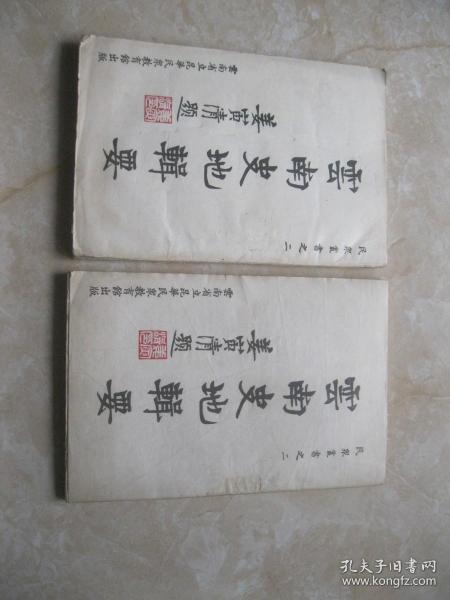 民衆叢書之二
雲南史地輯要
姜寅清題
雲南省立昆華民衆教育館出版
民衆叢書之二
雲南史地輯要
姜寅清題
雲南省立昆華民衆教育館出版
孔夫子旧书网
www.kongfz.com